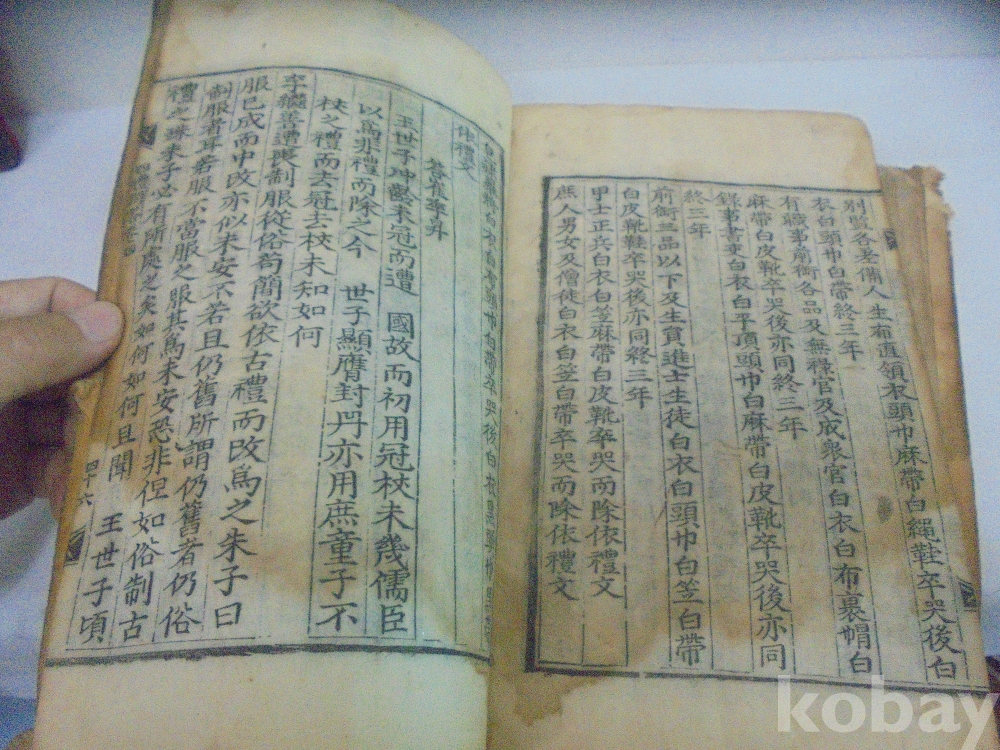 別監各差備人生布直領衣頭巾麻帶白繩鞋卒哭後白
衣白頭巾白帶終三年
有職事前銜各品及無祿官及成衆官白衣白布裹帽白
麻帶白皮靴卒哭後亦同終三年
錄事書吏白衣白平頂頭巾白麻帶白皮靴卒哭後亦同
終三年
前銜三品以下及生員進士生徒白衣白頭巾白笠白帶
白皮靴鞋卒哭後亦同終三年
甲士正兵白衣白笠麻帶白皮靴卒哭而除依禮文
庶人男女及僧徒白衣白笠白帶卒哭而除依禮文
白衣白布頭巾白帶卒哭後白
依禮文
答崔季昇
王世子冲齡未冠而遭 國故而初用冠校未幾儒臣
以爲非禮而除之今 世子顯膺封丹亦用庶童子不
校之禮而去冠去校未知如何
李繼善遭喪制服從俗苟簡欲依古禮而改爲之朱子曰
服已成而中改亦似未安不若且仍舊所謂仍舊者仍俗
制服者耳若服不當服之服其爲未安恐非但如俗制古
禮之殊朱子必有所處之矣如何如何且聞 王世子頃
四十六
kobay